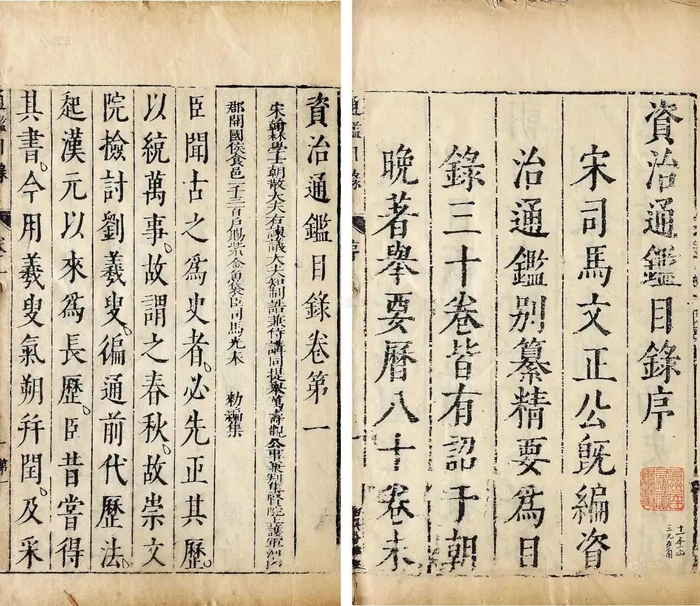 資治通鑑目錄序
宋司馬文正公旣編資
治通鑑別纂精要爲目
錄三十卷皆有詔于朝
晚著舉要曆八十卷未
通鑑目錄
序
資治通鑑目錄卷第一
宋翰林學士朝散大夫右諫議大夫知制誥兼侍講同提舉萬壽觀公事兼判集賢院上護軍河內
郡開國侯食邑一千三百戶賜紫金魚袋臣司馬光奉 勅編集
臣聞古之爲史者必先正其歷
以統萬事故謂之春秋故崇文
院檢討劉羲叟徧通前代歷法
起漢元以來爲長歷臣昔嘗得
其書今用羲叟氣朔并閏及采
通鑑目錄
卷一